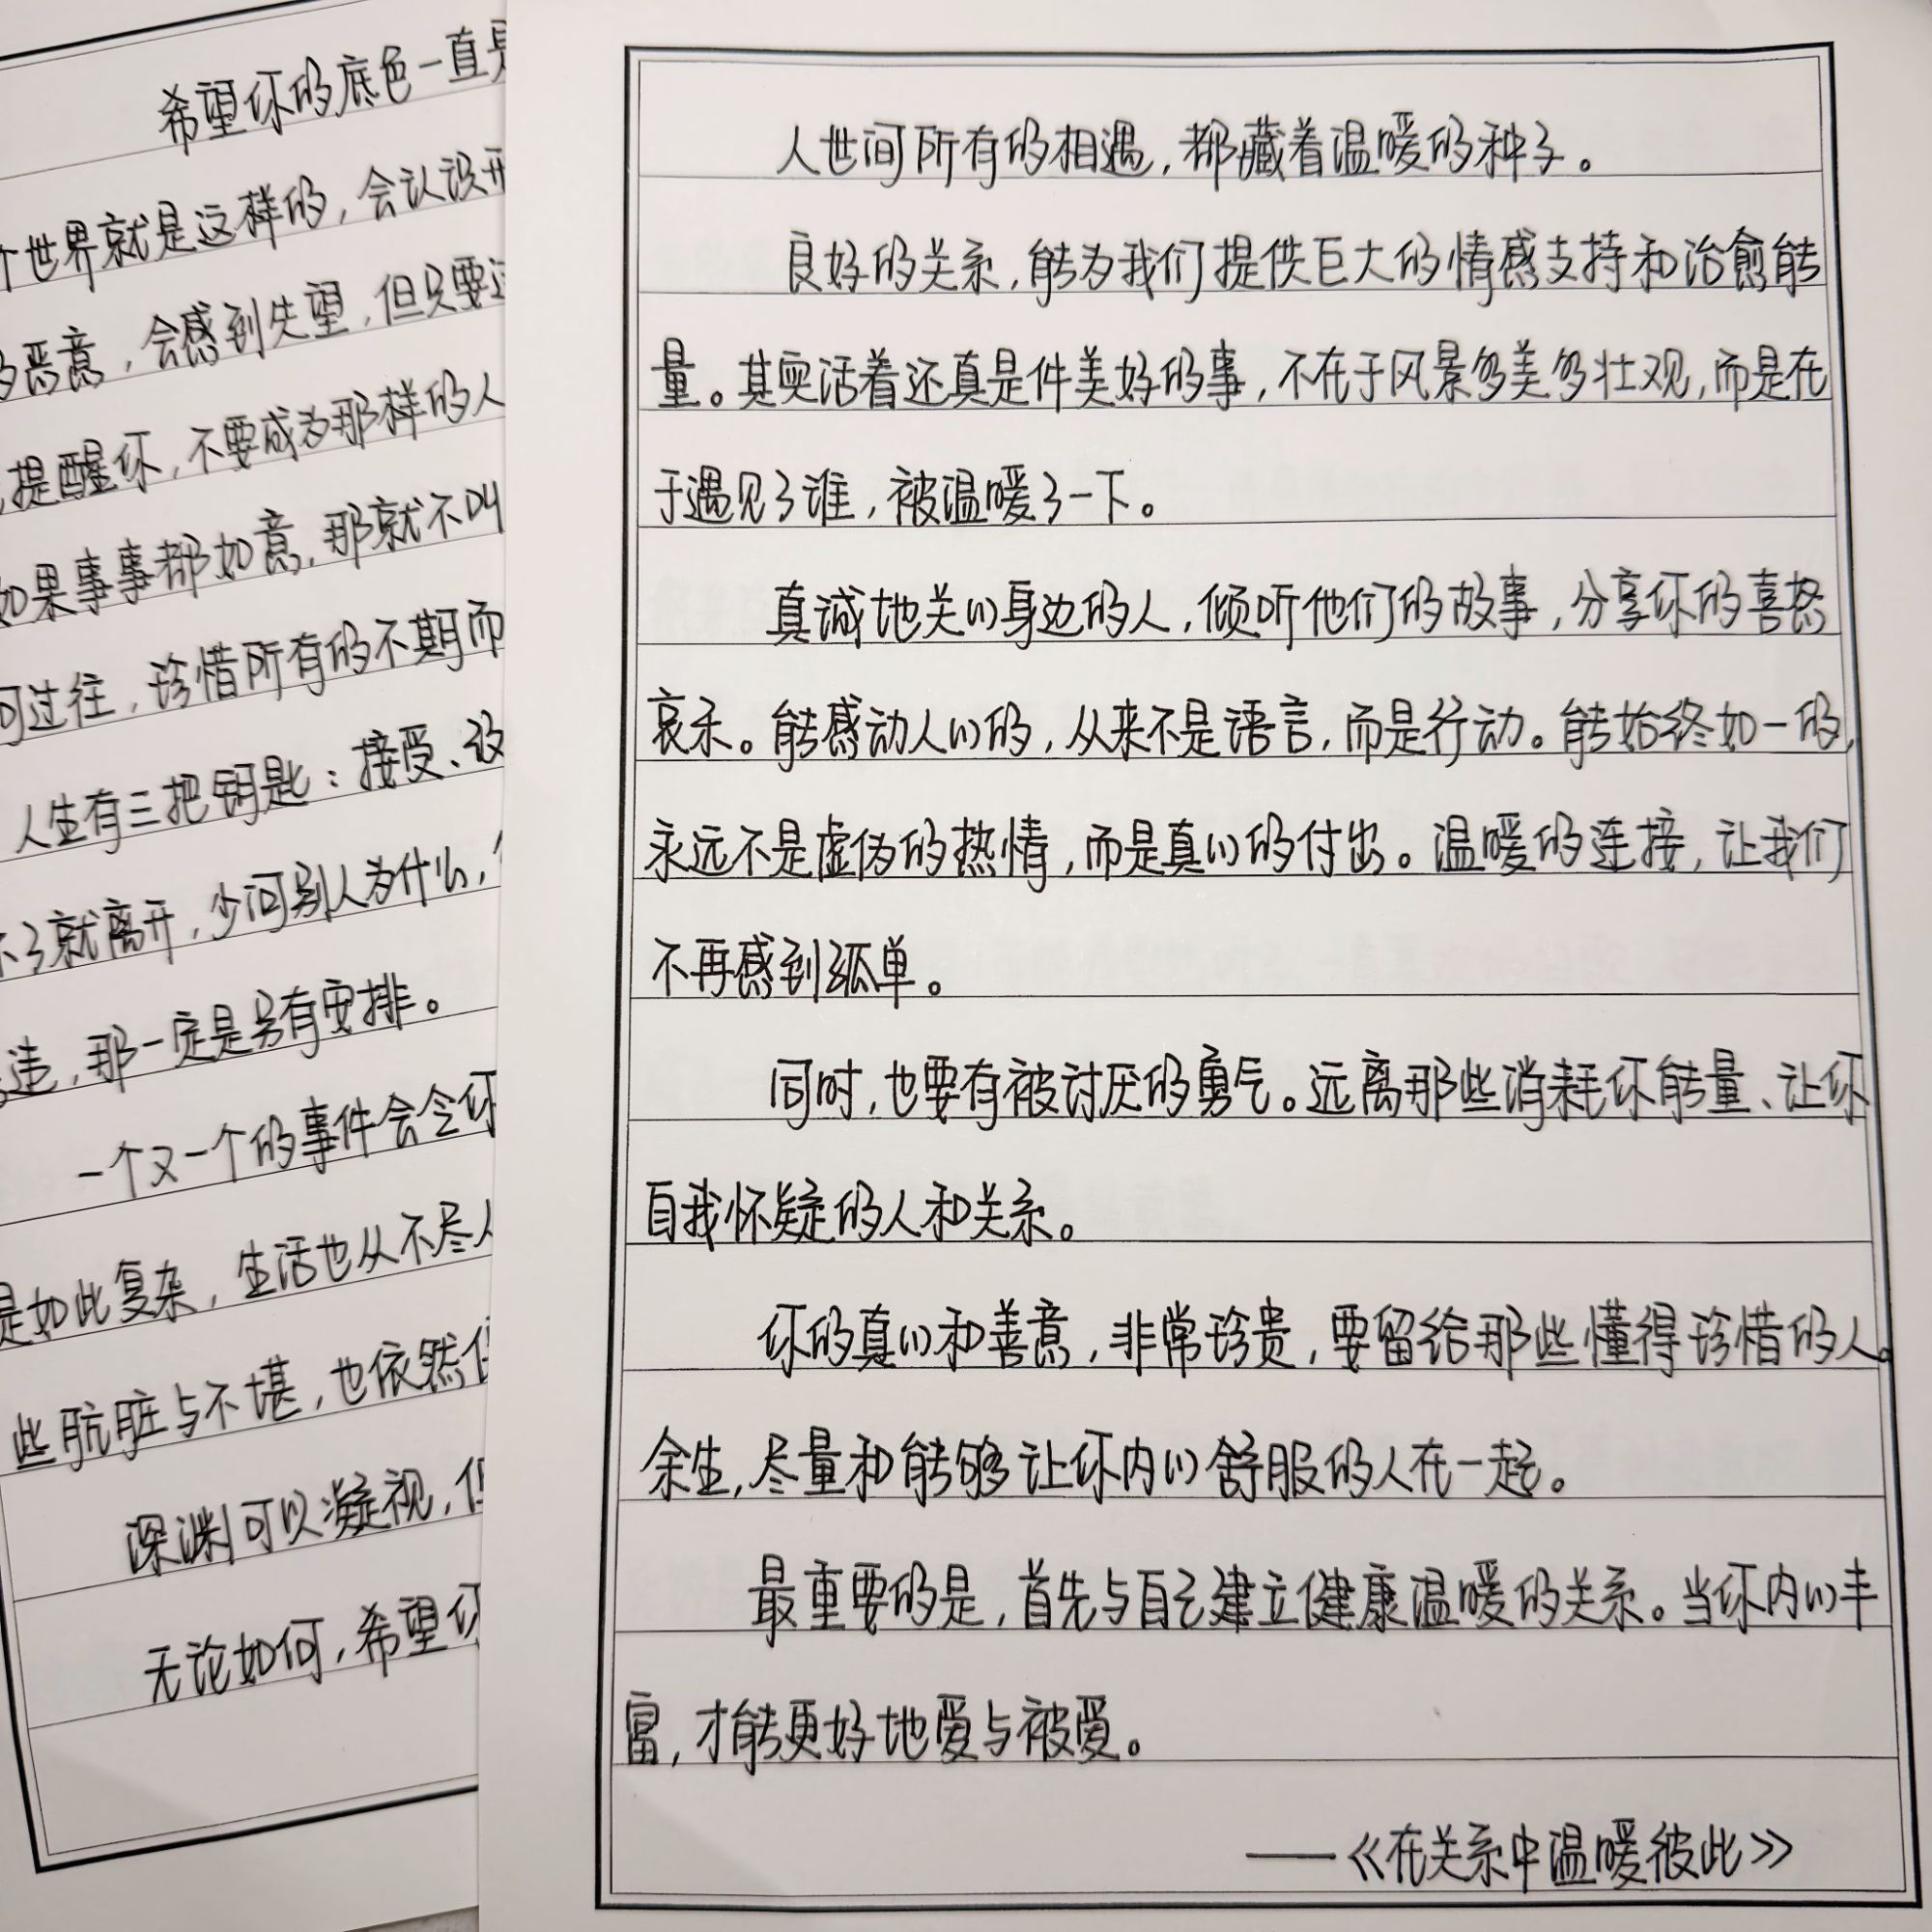 希望你的底色一直
世界就是这样的，会认识
恶意，会感到失望，但只要
提醒你，不要成为那样的人
如果事事都如意，那就不叫
问过往，珍惜所有的不期而
人生有三把钥匙：接受、
不了就离开，少问别人为什么，
违，那一定是另有安排。
一个又一个的事件会令你
是如此复杂，生活也从不尽
些肮脏与不堪，也依然
深渊可以凝视，但
无论如何，希望你
人世间所有的相遇，都藏着温暖的种子。
良好的关系，能为我们提供巨大的情感支持和治愈能
量。其实活着还真是件美好的事，不在于风景多美多壮观，而是在
于遇见了谁，被温暖了一下。
真诚地关心身边的人，倾听他们的故事，分享你的喜怒
哀乐。能感动人心的，从来不是语言，而是行动。能始终如一的，
永远不是虚伪的热情，而是真心的付出。温暖的连接，让我们
不再感到孤单。
同时，也要有被讨厌的勇气。远离那些消耗你能量、让你
自我怀疑的人和关系。
你的真心和善意，非常珍贵，要留给那些懂得珍惜的人。
余生，尽量和能够让你内心舒服的人在一起。
最重要的是，首先与自己建立健康温暖的关系。当你内心丰
富，才能更好地爱与被爱。
——《在关系中温暖彼此》